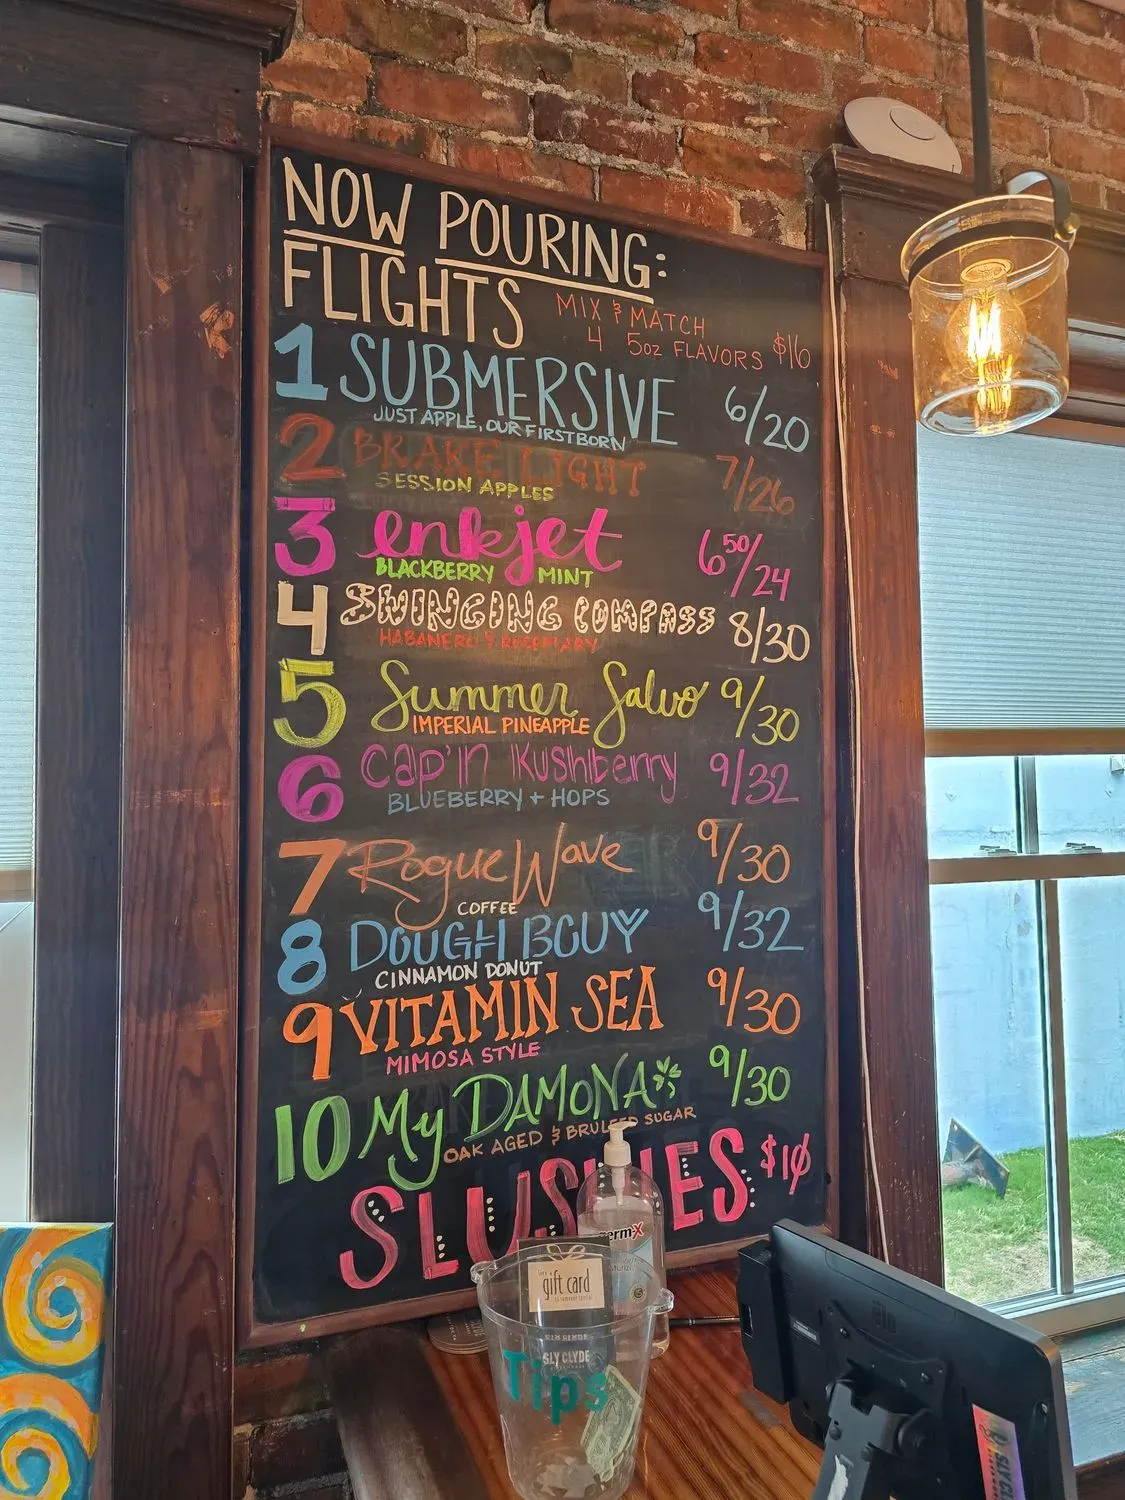 NOW POURING:
FLIGHTS MIX & MATCH
4 5oz FLAVORS $16
1 SUBMERSIVE 6/20
JUST APPLE, OUR FIRSTBORN
2 BRAKE LIGHT 7/26
SESSION APPLES
3 enkjet 650/24
BLACKBERRY MINT
4 SWINGING COMPASS 8/30
HABANERO & ROSEMARY
5 Summer Salvo 9/30
IMPERIAL PINEAPPLE
6 Cap'n Kushberry 9/32
BLUEBERRY + HOPS
7 Rogue Wave 9/30
COFFEE
8 DOUGH BOUY 9/32
CINNAMON DONUT
9 VITAMIN SEA 9/30
MIMOSA STYLE
10 My DAMONA 9/30
OAK AGED & BRULEED SUGAR
SLUSHIES $10
germ-X
gift card
SLY CLYDE
Tips
elo